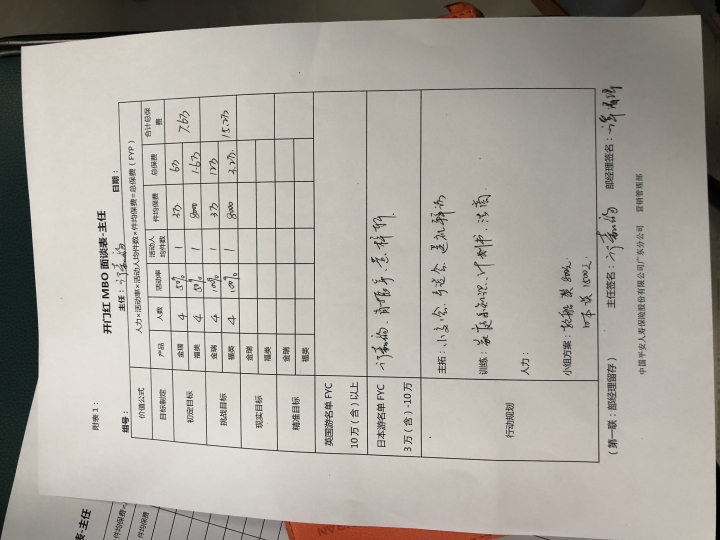 附表1：
开门红MBO面谈表-主任
组号： 主任： 日期：
价值公式 人力×活动率×活动人均件数×件均保费=总保费（FYP）
目标制定 产品 人数 活动率 活动人均件数 件均保费 总保费 合计总保费
初定目标 金瑞 4 50% 1 3万 6万 7.6万
福类 4 50% 1 8000 1.6万
挑战目标 金瑞 4 100% 1 3万 12万 15.2万
福类 4 100% 1 8000 3.2万
现实目标 金瑞
福类
精准目标 金瑞
福类
英国游名单FYC
10万（含）以上
日本游名单FYC
3万（含）-10万
行动规划
主拓：小交会、
训练：家庭 知识、计划书、
人力：
小组方案： 8000元
日本 1500元
（第一联：部经理留存） 主任签名： 部经理签名：
中国平安人寿保险股份有限公司广东分公司 营销管理部
表-主任
件均保费=
件均保费